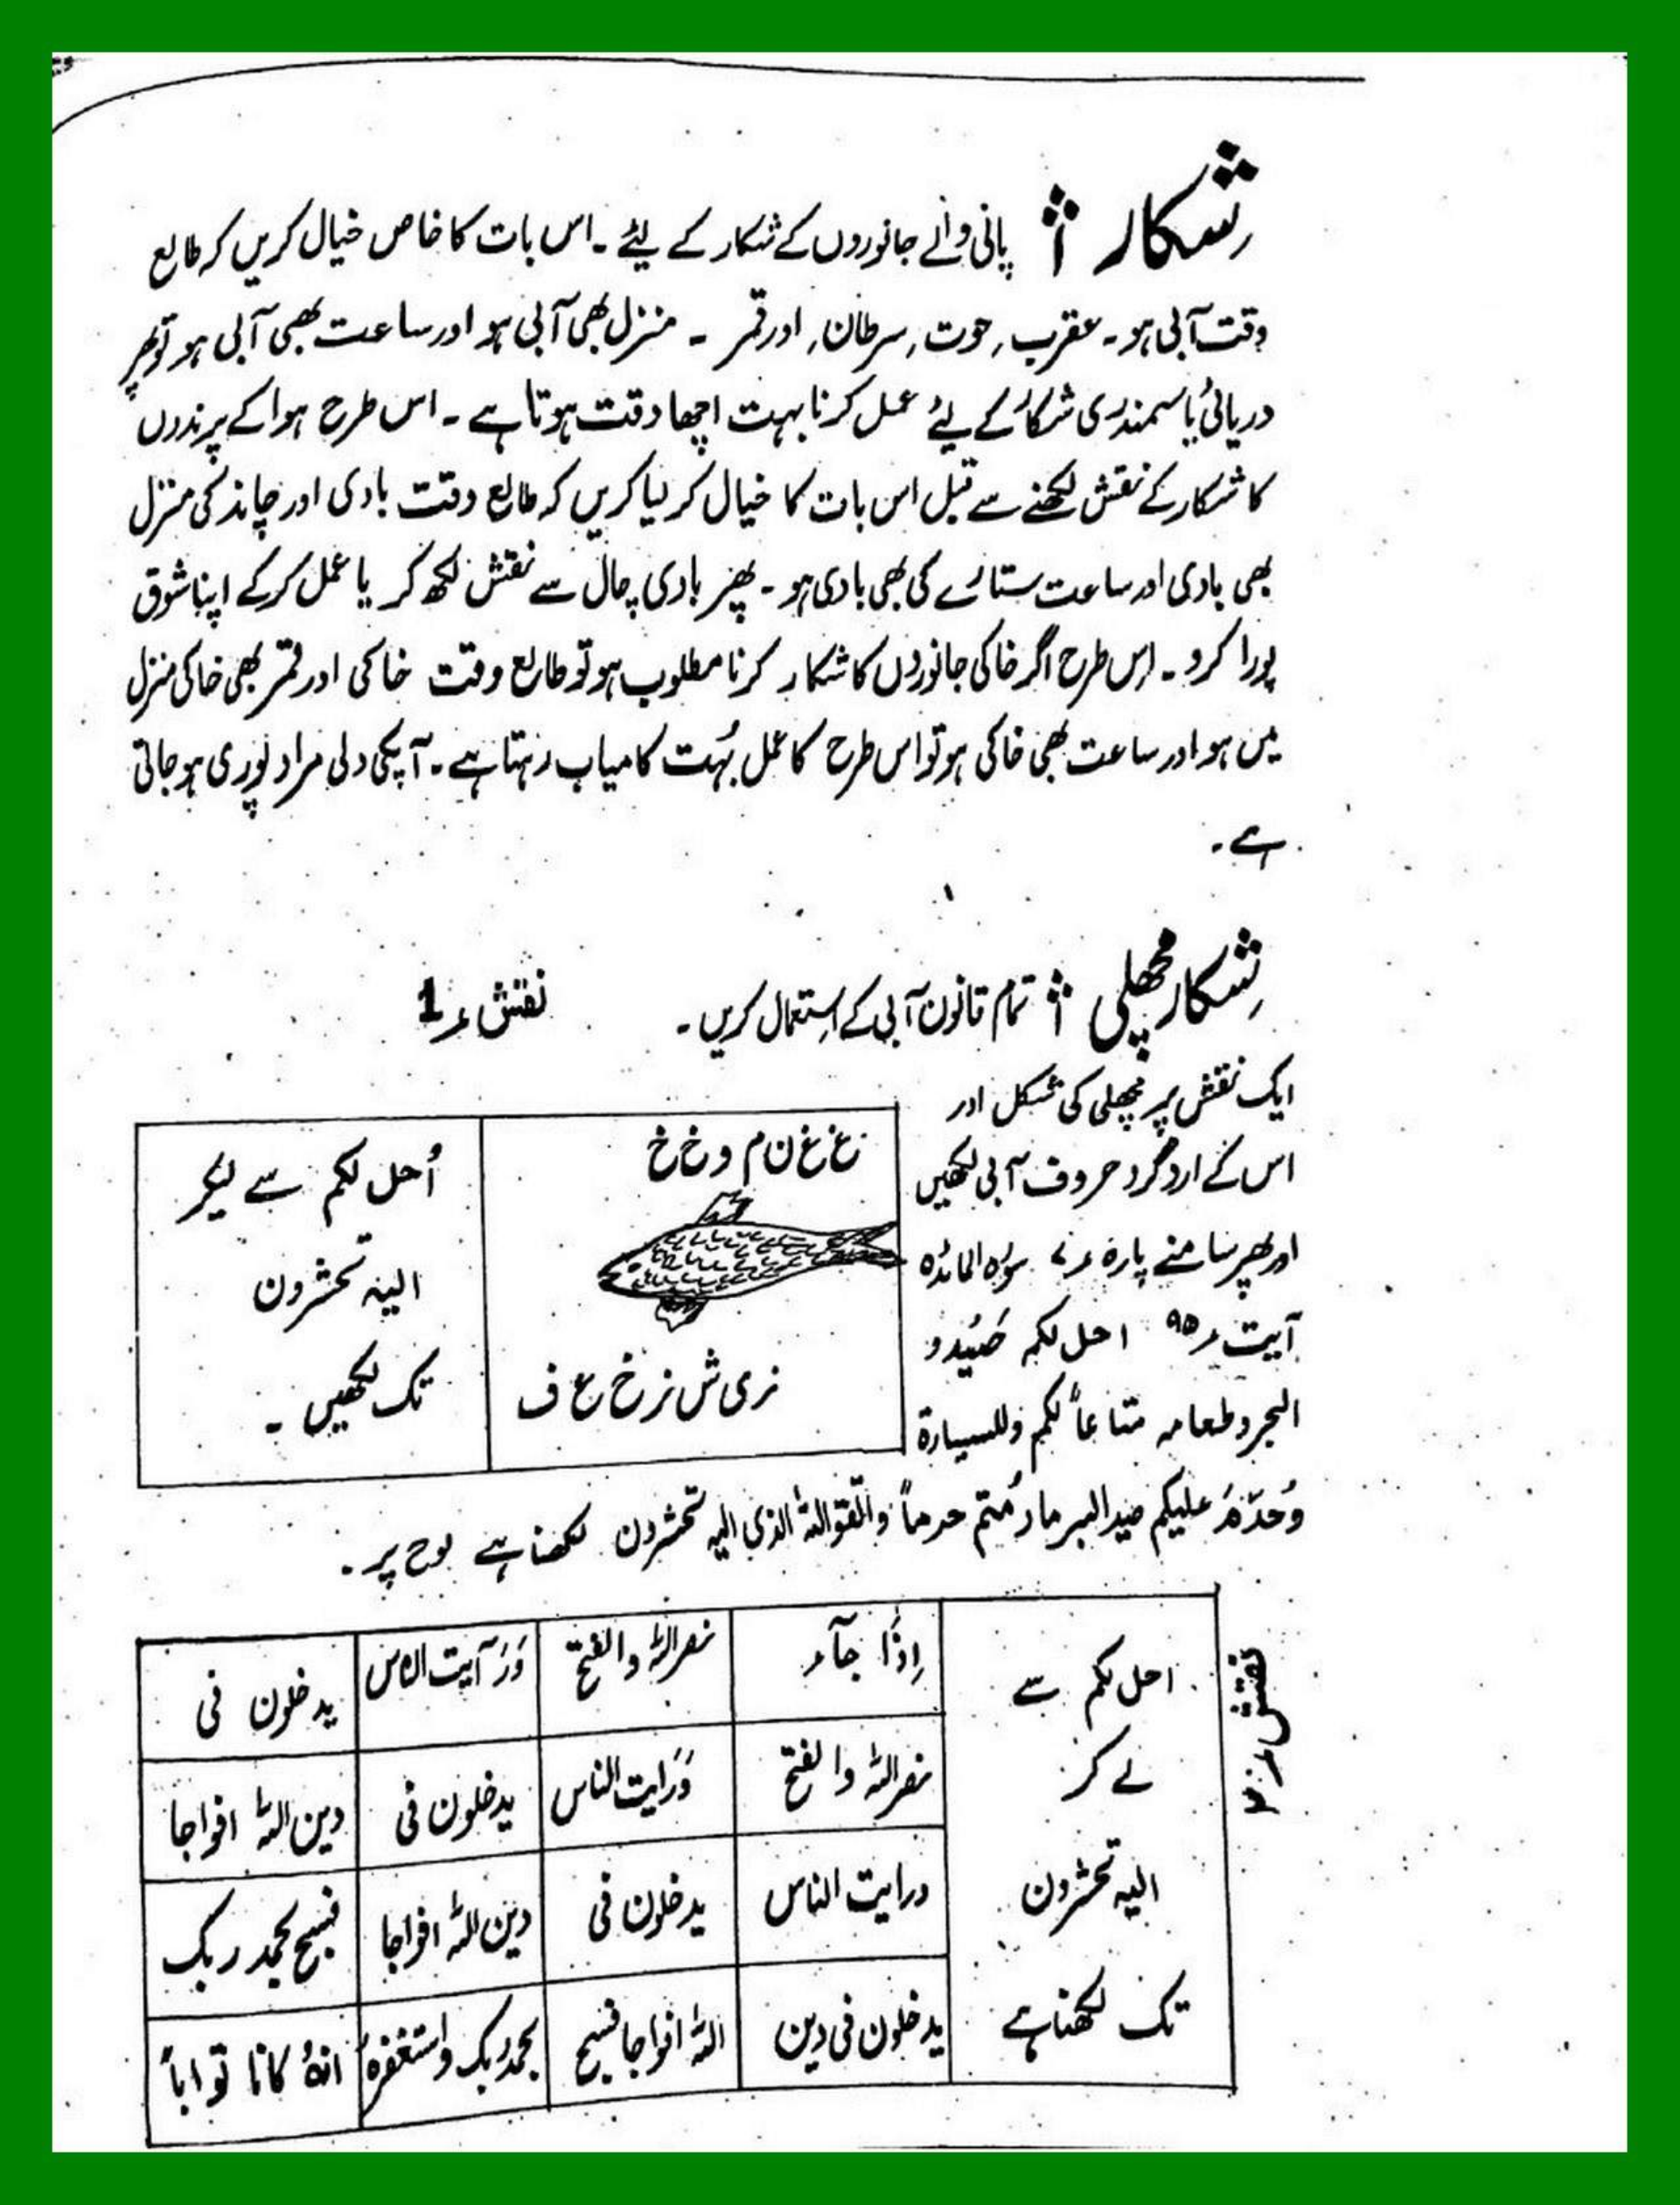 شکار :۔ پانی والے جانوروں کے شکار کے لیئے ۔ اس بات کا خاص خیال کریں کہ طالع
وقت آبی ہو ۔ عقرب, حوت, سرطان, اور قمر ۔ منزل بھی آبی ہو اور ساعت بھی آبی ہو تو پھر
دریائی یا سمندری شکار کے لیئے عمل کرنا بہت اچھا وقت ہوتا ہے ۔ اس طرح ہوا کے پرندوں
کا شکار کے نقش لکھنے سے قبل اس بات کا خیال کر لیا کریں کہ طالع وقت بادی اور چاند کی منزل
بھی بادی اور ساعت ستارے کی بھی بادی ہو ۔ پھر بادی چال سے نقش لکھ کر یا عمل کرکے اپنا شوق
پورا کرو ۔ اس طرح اگر خاکی جانوروں کا شکار کرنا مطلوب ہو تو طالع وقت خاکی اور قمر بھی خاکی منزل
میں ہو اور ساعت بھی خاکی ہو تو اس طرح کا عمل بہُت کامیاب رہتا ہے ۔ آپکی دلی مراد پوری ہو جاتی
ہے ۔
شکار مچھلی :۔ تمام قانون آبی کے استعمال کریں ۔ نقش ۱
ایک نقش پر مچھلی کی شکل اور
اس کے اردگرد حروف آبی لکھیں
اور پھر سامنے پارہ ۷ سورہ المائدہ
آیت ۹۵ احل لکم صَیُد و
البحر وطعامہ متاعاً لکم وللسیارۃ
وَحُدّمَر علیکم صید البر مادُمتم حرماً والقو اللہ الذی الیہ تحشرون لکھنا ہے لوح پر ۔
غ غ ن م و خ خ
ز ی ش ز خ ع ف
اُحل لکم سے لیکر
الیہ تحشرون
تک لکھیں ۔
نقش ۲
احل لکم سے
لے کر
الیہ تحشرون
تک لکھنا ہے
اِذَا جآء نصر اللہ والفتح وَرَ آیت الناس یدخلون فی
نصر اللہ والفتح وَرَایت الناس یدخلون فی دین اللہ افواجا
ورایت الناس یدخلون فی دین للہ افواجا فسبح بحمد ربک
یدخلون فی دین اللہ افواجا فسبح بحمد ربک واستغفرہُ انہُ کانا تواباً